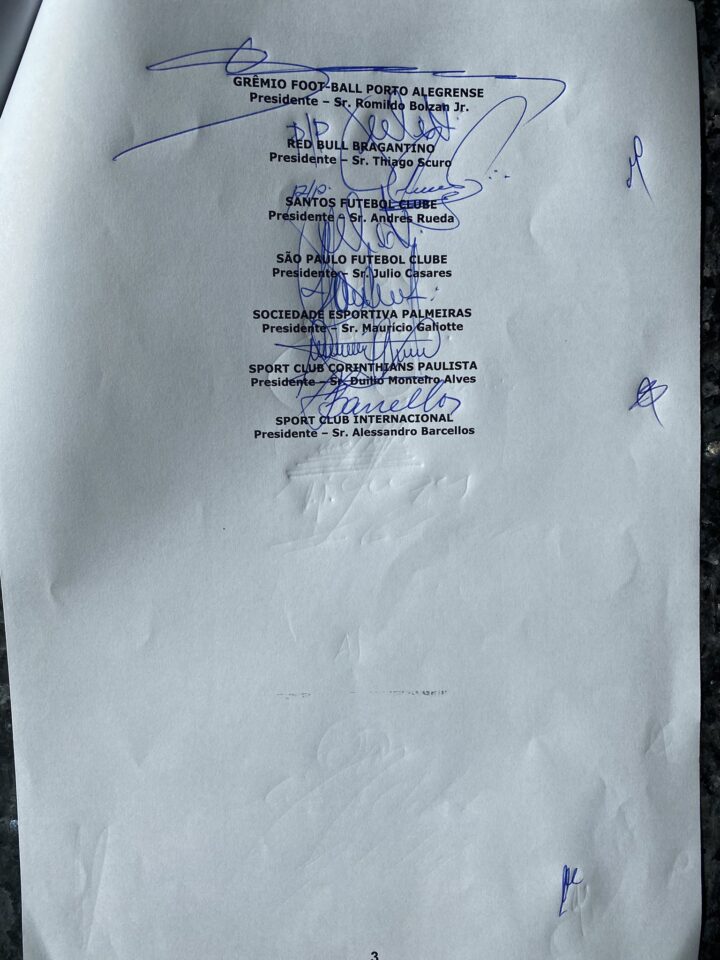 GRÊMIO FOOT-BALL PORTO ALEGRENSE
Presidente – Sr. Romildo Bolzan Jr.
P/P
RED BULL BRAGANTINO
Presidente – Sr. Thiago Scuro
P/P.
SANTOS FUTEBOL CLUBE
Presidente – Sr. Andres Rueda
SÃO PAULO FUTEBOL CLUBE
Presidente – Sr. Julio Casares
SOCIEDADE ESPORTIVA PALMEIRAS
Presidente – Sr. Maurício Galiotte
SPORT CLUB CORINTHIANS PAULISTA
Presidente – Sr. Duílio Monteiro Alves
Barcellos
SPORT CLUB INTERNACIONAL
Presidente – Sr. Alessandro Barcellos
3